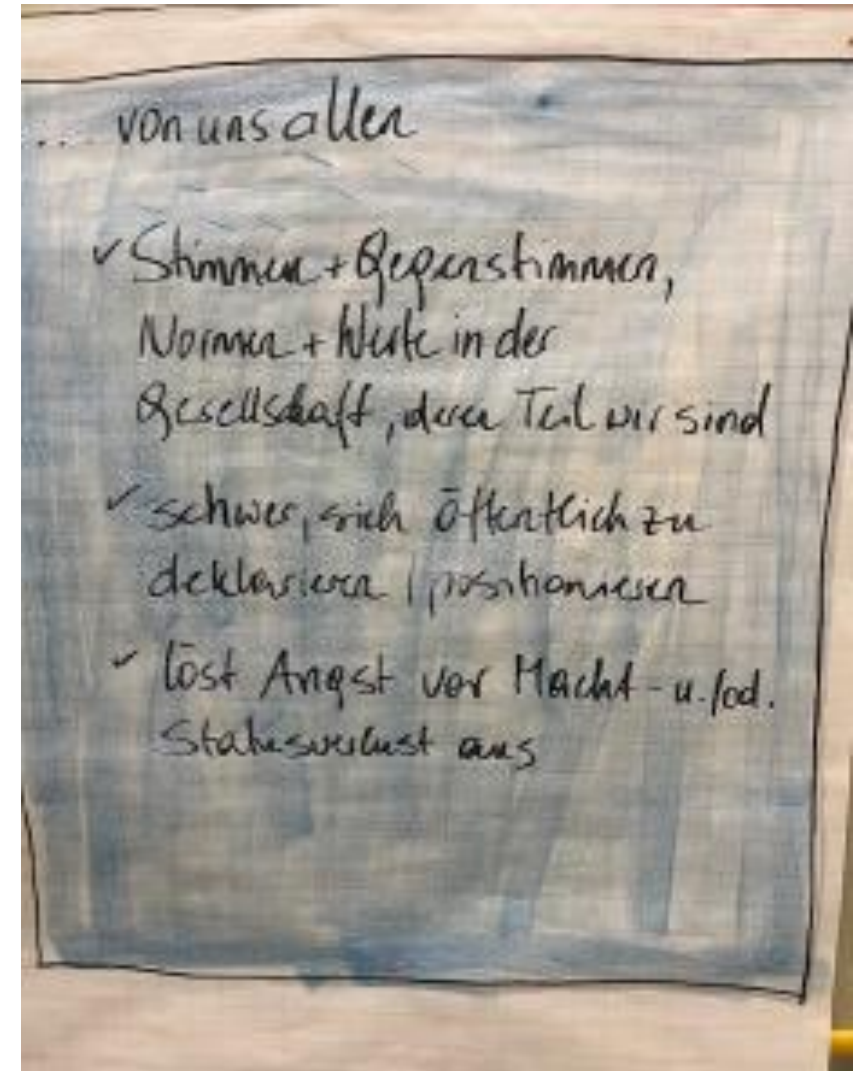 ... von uns allen
✓ Stimmen + Gegenstimmen,
Normen + Werte in der
Gesellschaft, deren Teil wir sind
✓ schwer, sich öffentlich zu
deklarieren / positionieren
✓ löst Angst vor Macht- u./od.
Statusverlust aus